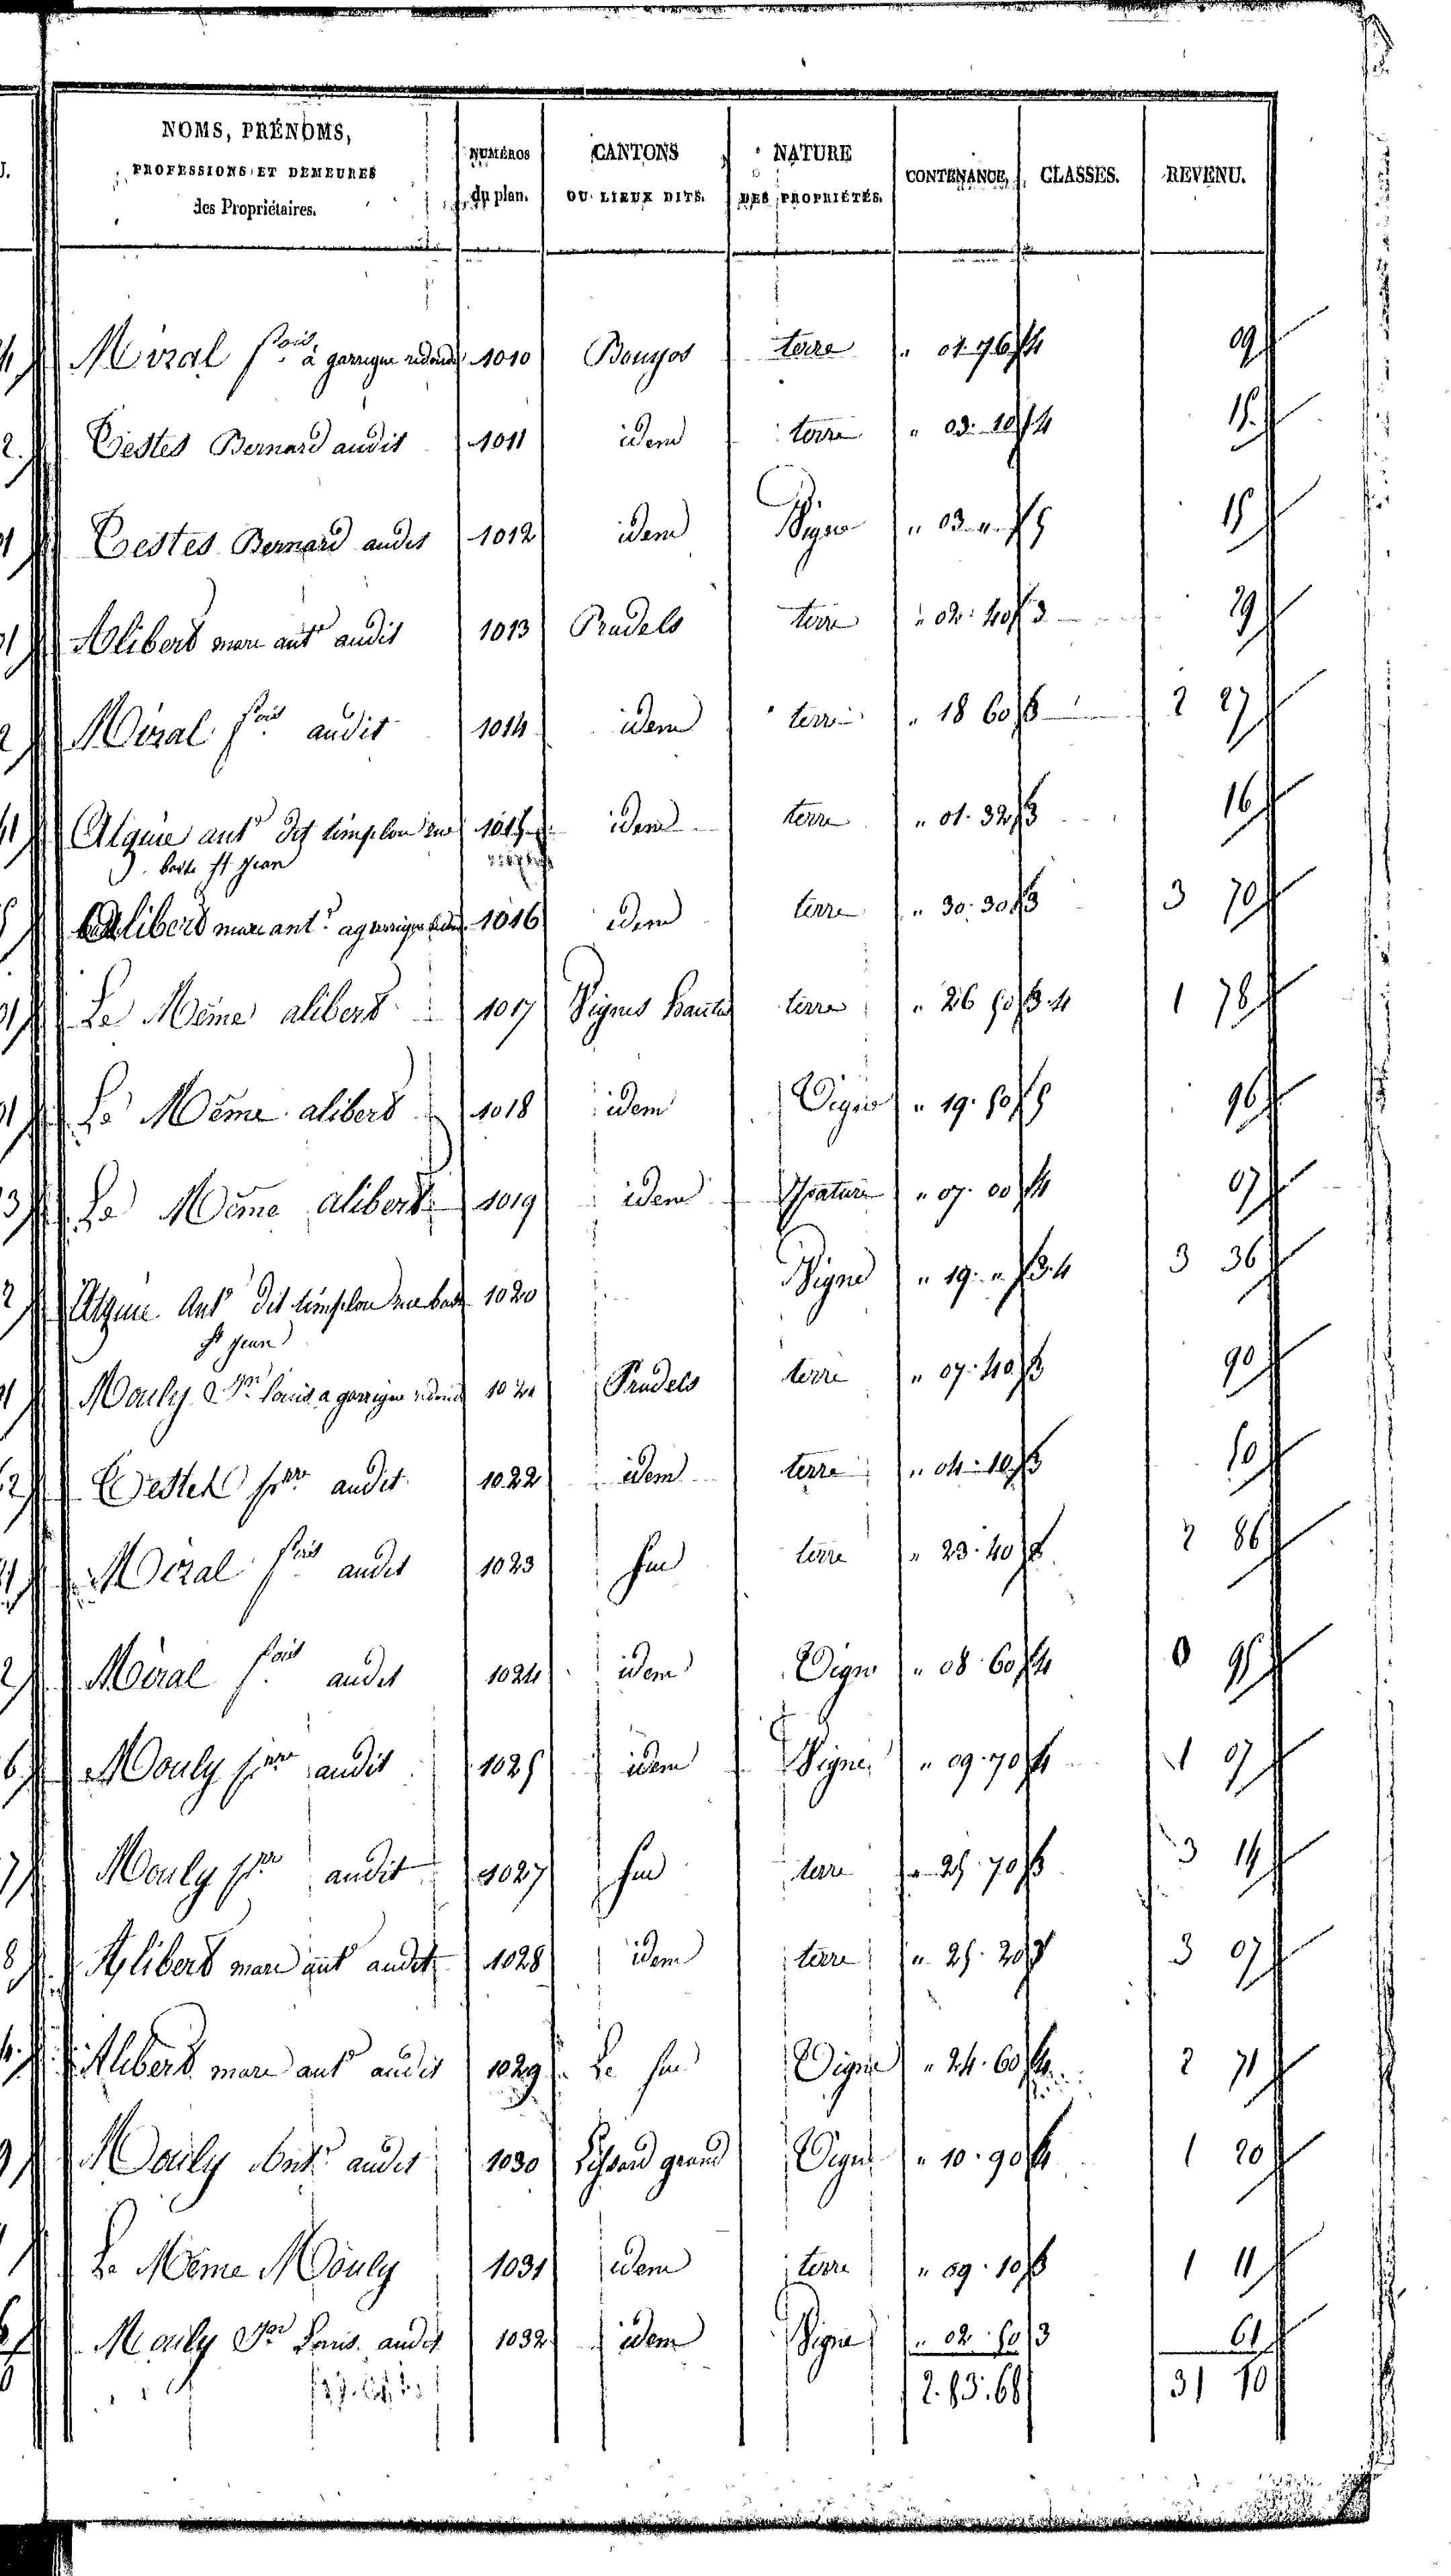 NOMS, PRÉNOMS, PROFESSIONS ET DEMEURES des Propriétaires. NUMÉROS du plan. CANTONS OU LIEUX DITS. NATURE DES PROPRIÉTÉS. CONTENANCE. CLASSES. REVENU.
Miral fois à garrigue redonde 1010 Bouysos terre " 01. 76 4 09
Testes Bernard audit 1011 idem terre " 03. 10 4 15
Testes Bernard audit 1012 idem Vigne " 03. " 5 15
Alibert marc ant audit 1013 Pradels terre " 02. 40 3 29
Miral fois audit 1014 idem terre " 18 60 3 2 27
Alquié ant dit simplon rue 1015 idem terre " 01. 32 3 16
basse St Jean
Alibert marc ant a garrigue redonde 1016 idem terre " 30. 30 3 3 70
Le Même alibert 1017 Vignes hautes terre " 26 50 3.4 1 78
Le Même alibert 1018 idem Vigne " 19. 50 5 96
Le Même alibert 1019 idem pature " 07. 00 4 07
Alquié Ant dit simplon rue basse 1020 Vigne " 19. " 3.4 3 36
St Jean
Mouly Jn louis a garrigue redonde 1021 Pradels terre " 07. 40 3 90
Testes pre audit 1022 idem terre " 04. 10 3 50
Miral fois audit 1023 terre " 23. 40 3 2 86
Miral fois audit 1024 idem Vigne " 08. 60 4 0 95
Mouly pre audit 1025 idem Vigne " 09. 70 4 1 07
Mouly pre audit 1027 terre " 25. 70 3 3 14
Alibert marc ant audit 1028 idem terre " 25. 20 3 3 07
Alibert marc ant audit 1029 Le Vigne " 24. 60 4 2 71
Mouly Ant audit 1030 grand Vigne " 10. 90 4 1 20
Le Même Mouly 1031 idem terre " 09. 10 3 1 11
Mouly Jn Louis audit 1032 idem Vigne " 02. 50 3 61
2. 83. 68 31 10